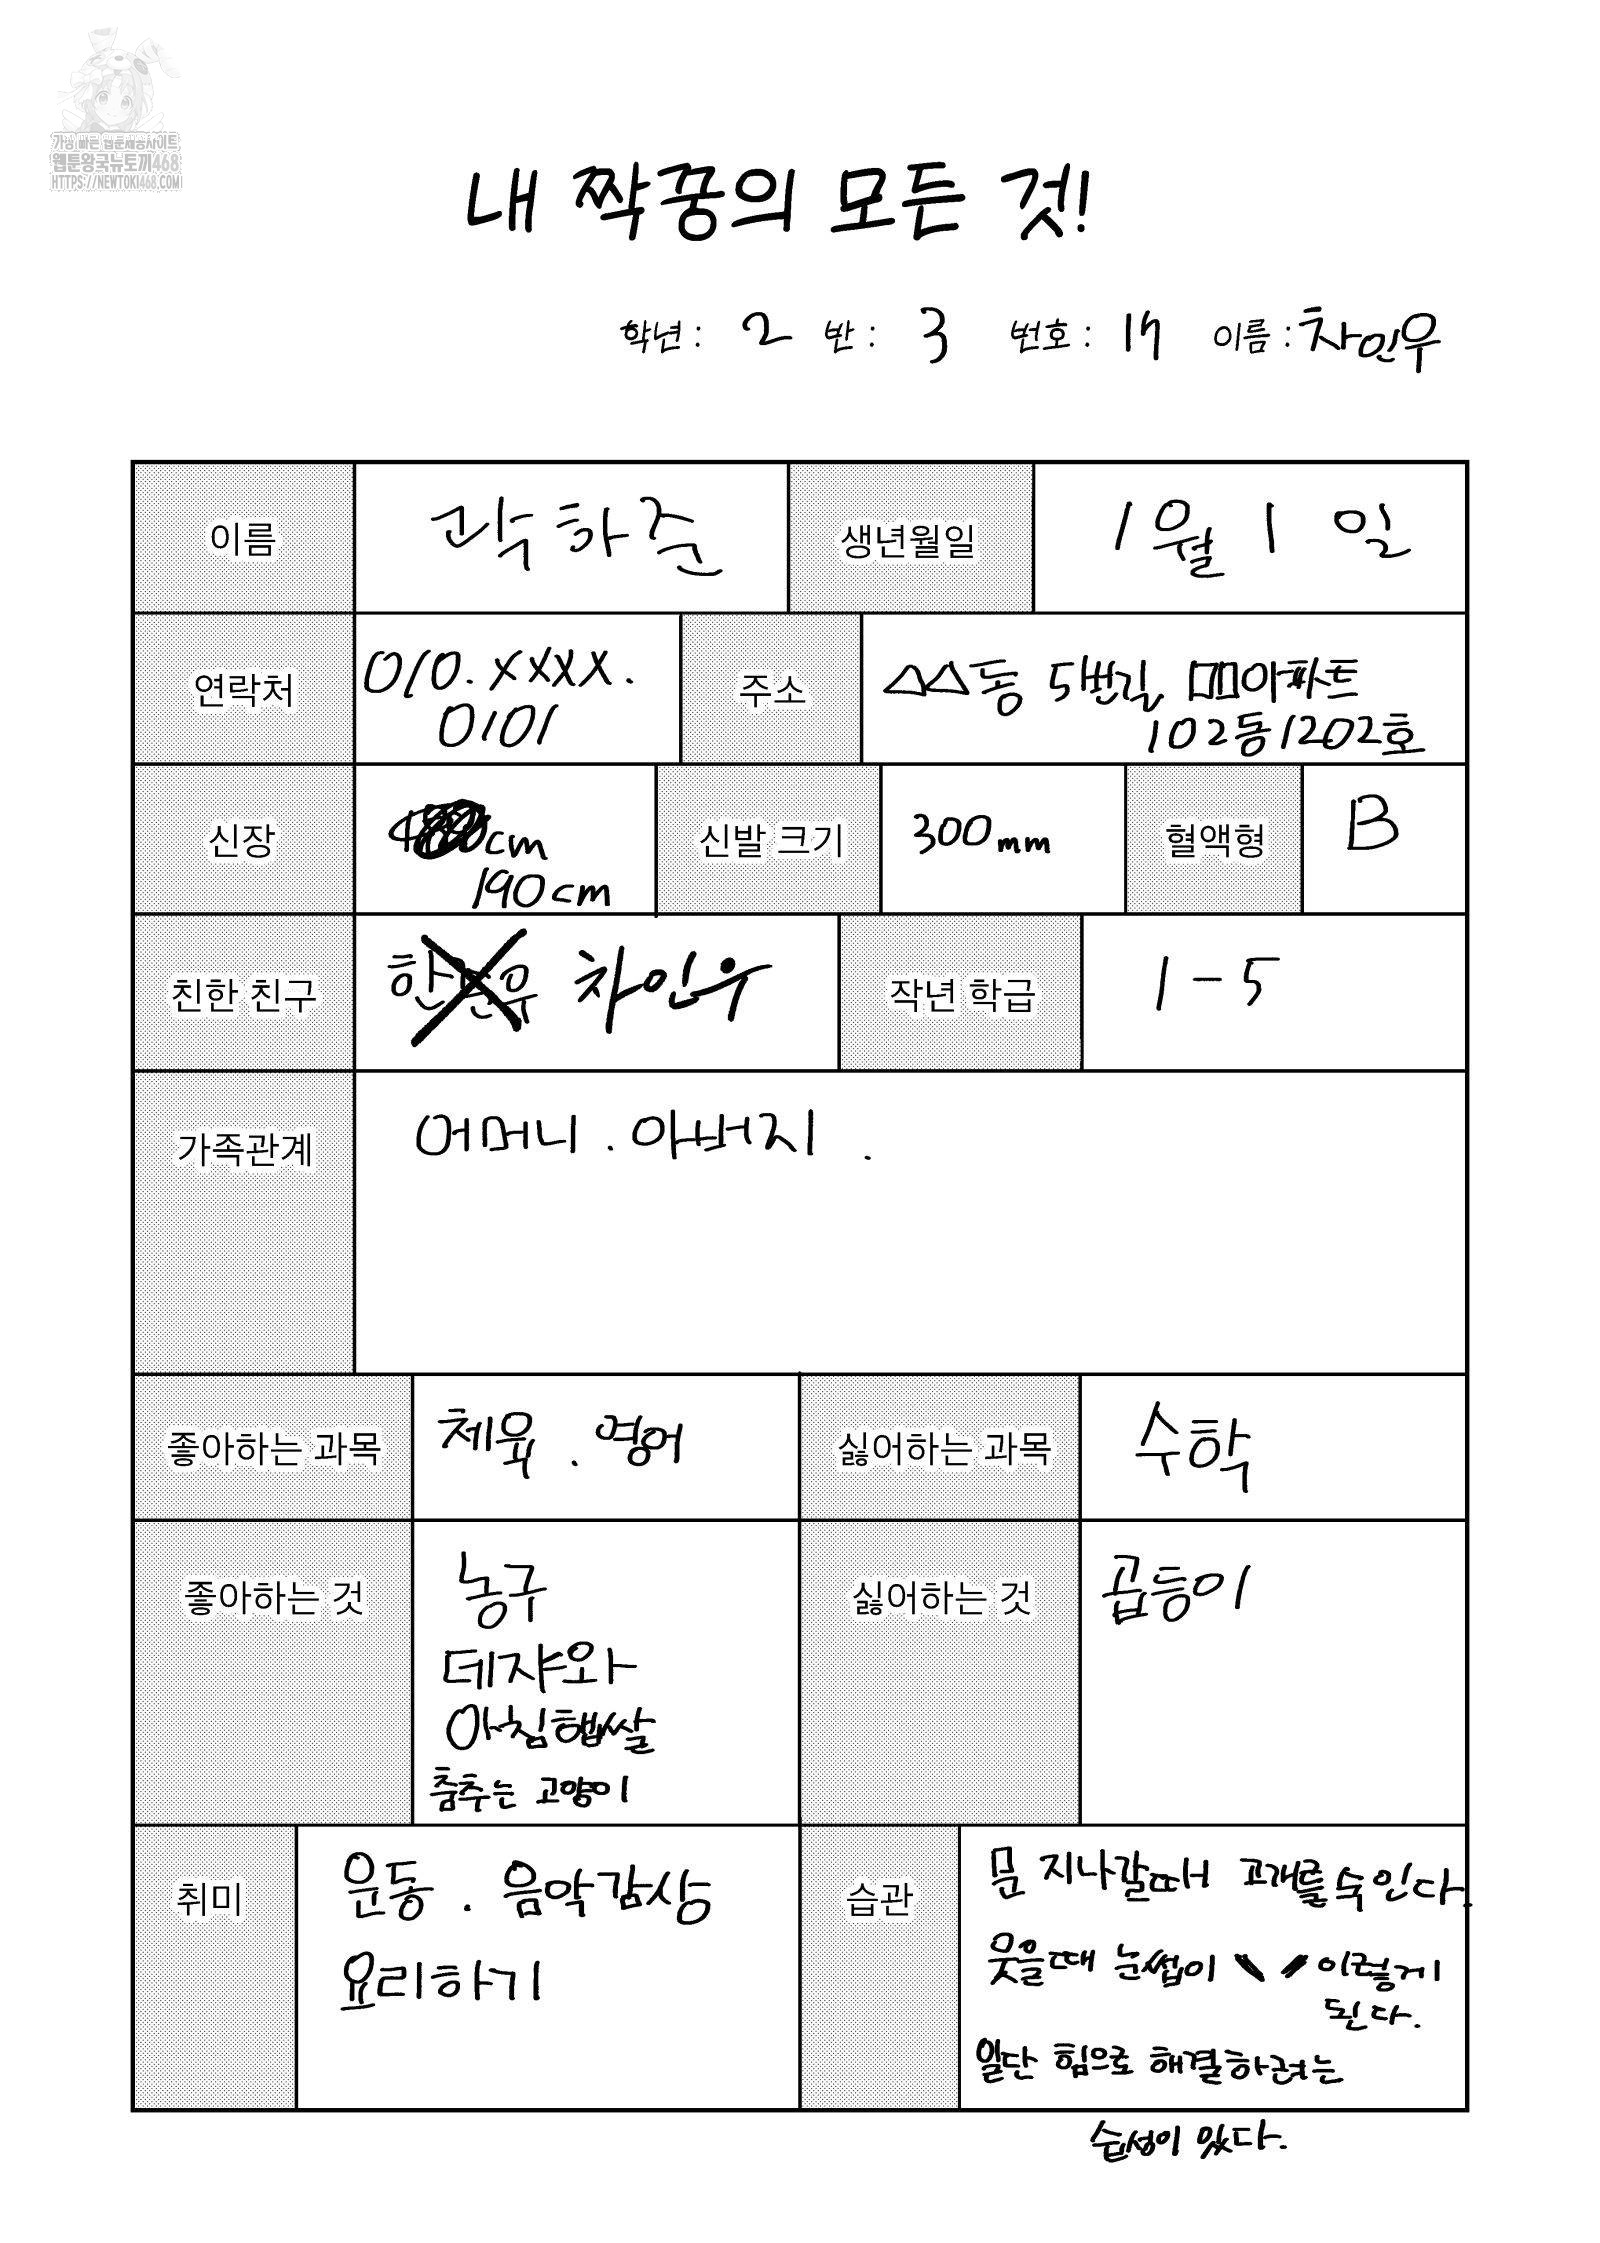 가장 빠른 웹툰제공사이트
웹툰왕국뉴토끼468
HTTPS://NEWTOKI468.COM
내 짝꿍의 모든 것!
학년 : 2 반 : 3 번호 : 17 이름 : 차인우
이름 곽하준 생년월일 1월 1일
연락처 010.XXXX. 주소 △△동 5번길 ㅁㅁ아파트
0101 102동1202호
신장 cm 신발 크기 300mm 혈액형 B
190cm
친한 친구 차인우 작년 학급 1-5
가족관계 어머니 . 아버지 .
좋아하는 과목 체육 . 영어 싫어하는 과목 수학
좋아하는 것 농구 싫어하는 것 곱등이
데쟈와
아침햅쌀
춤추는 고양이
취미 운동 . 음악감상 습관 문 지나갈때 고개를숙인다.
요리하기 웃을때 눈썹이 \ / 이렇게
된다.
일단 힘으로 해결하려는
습성이 있다.